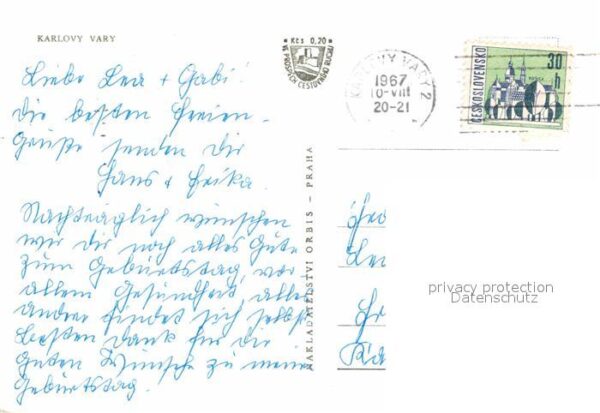 KARLOVY VARY
Kčs 0,20
VE PROSPĚCH CESTOVNÍHO RUCHU
KARLOVY VARY 2
1967
10-VIII
20-21
ČESKOSLOVENSKO
30 h
Liebe Lea + Gabi!
Die besten Ferien-
Grüße senden Dir
Hans + Erika.
Nachträglich wünschen
wir Dir noch alles Gute
zum Geburtstag, vor
allem Gesundheit, alles
andre findet sich selbst
besten Dank für die
Guten Wünsche zu meinem
Geburtstag.
NAKLADATELSTVÍ ORBIS - PRAHA
privacy protection
Datenschutz